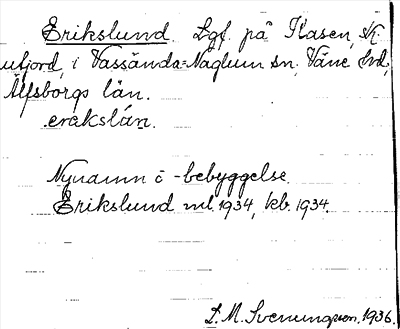 Erikslund. Lgf. på Ilasen, sK.
ufjord, i Vassända-Naglum sn, Väne hd,
Älfsborgs län.
erakslán.
Nynamn o -bebyggelse
Erikslund ml. 1934, kb. 1934.
S. M. Svenungsson, 1936.